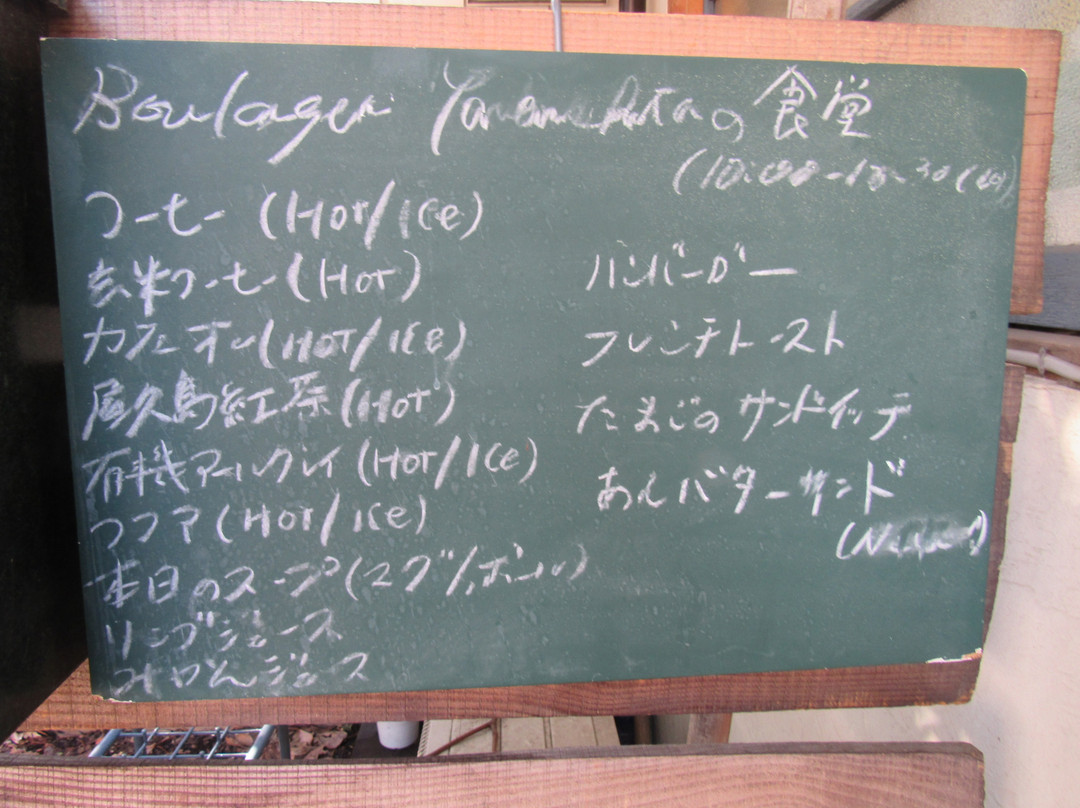 Boulager の食堂
(10:00-
コーヒー (HOT/ICe)
玄米コーヒー (HOT)
カフェオレ (HOT/ICe)
屋久島紅茶 (HOT)
有機アールグレイ (HOT/ICe)
ココア (HOT/ICe)
本日のスープ (マグ/ボール)
リンゴジュース
みかんジュース
ハンバーガー
フレンチトースト
たまごのサンドイッチ
あんバターサンド